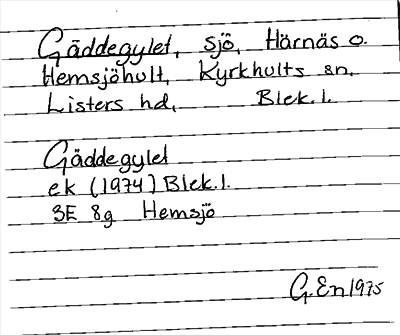 Gäddegylet, sjö, Härnäs o.
Hemsjöhult, Kyrkhults sn,
Listers hd, Blek. l.
Gäddegylet
ek (1974) Blek. l.
3E 8g Hemsjö
G. En 1975